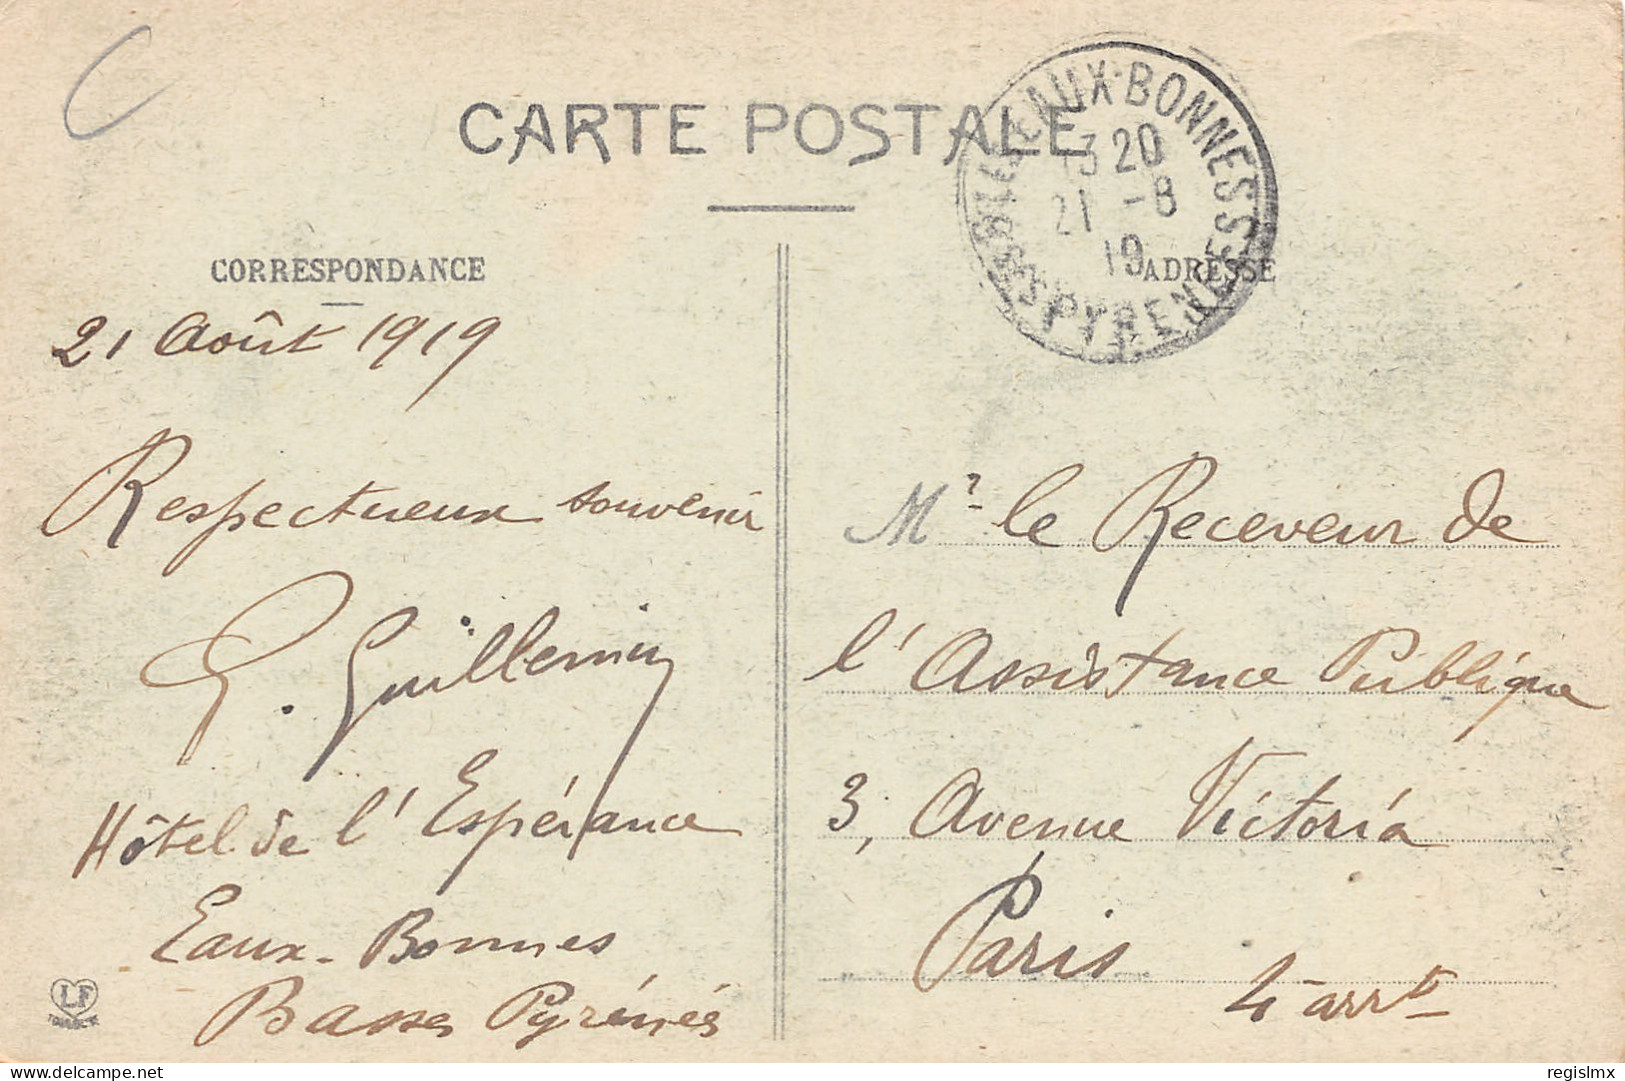 CARTE POSTALE
EAUX-BONNES
13 20
21 -8
19
BSES PYRENEES
CORRESPONDANCE
ADRESSE
21 Août 1919
Respectueux souvenir
G. Guillemin
Hôtel de l'Espérance
Eaux-Bonnes
Basses Pyrénées
LF
Mr le Receveur de
l'Assistance Publique
3, Avenue Victoria
Paris
4 arrt
www.delcampe.net
regislmx